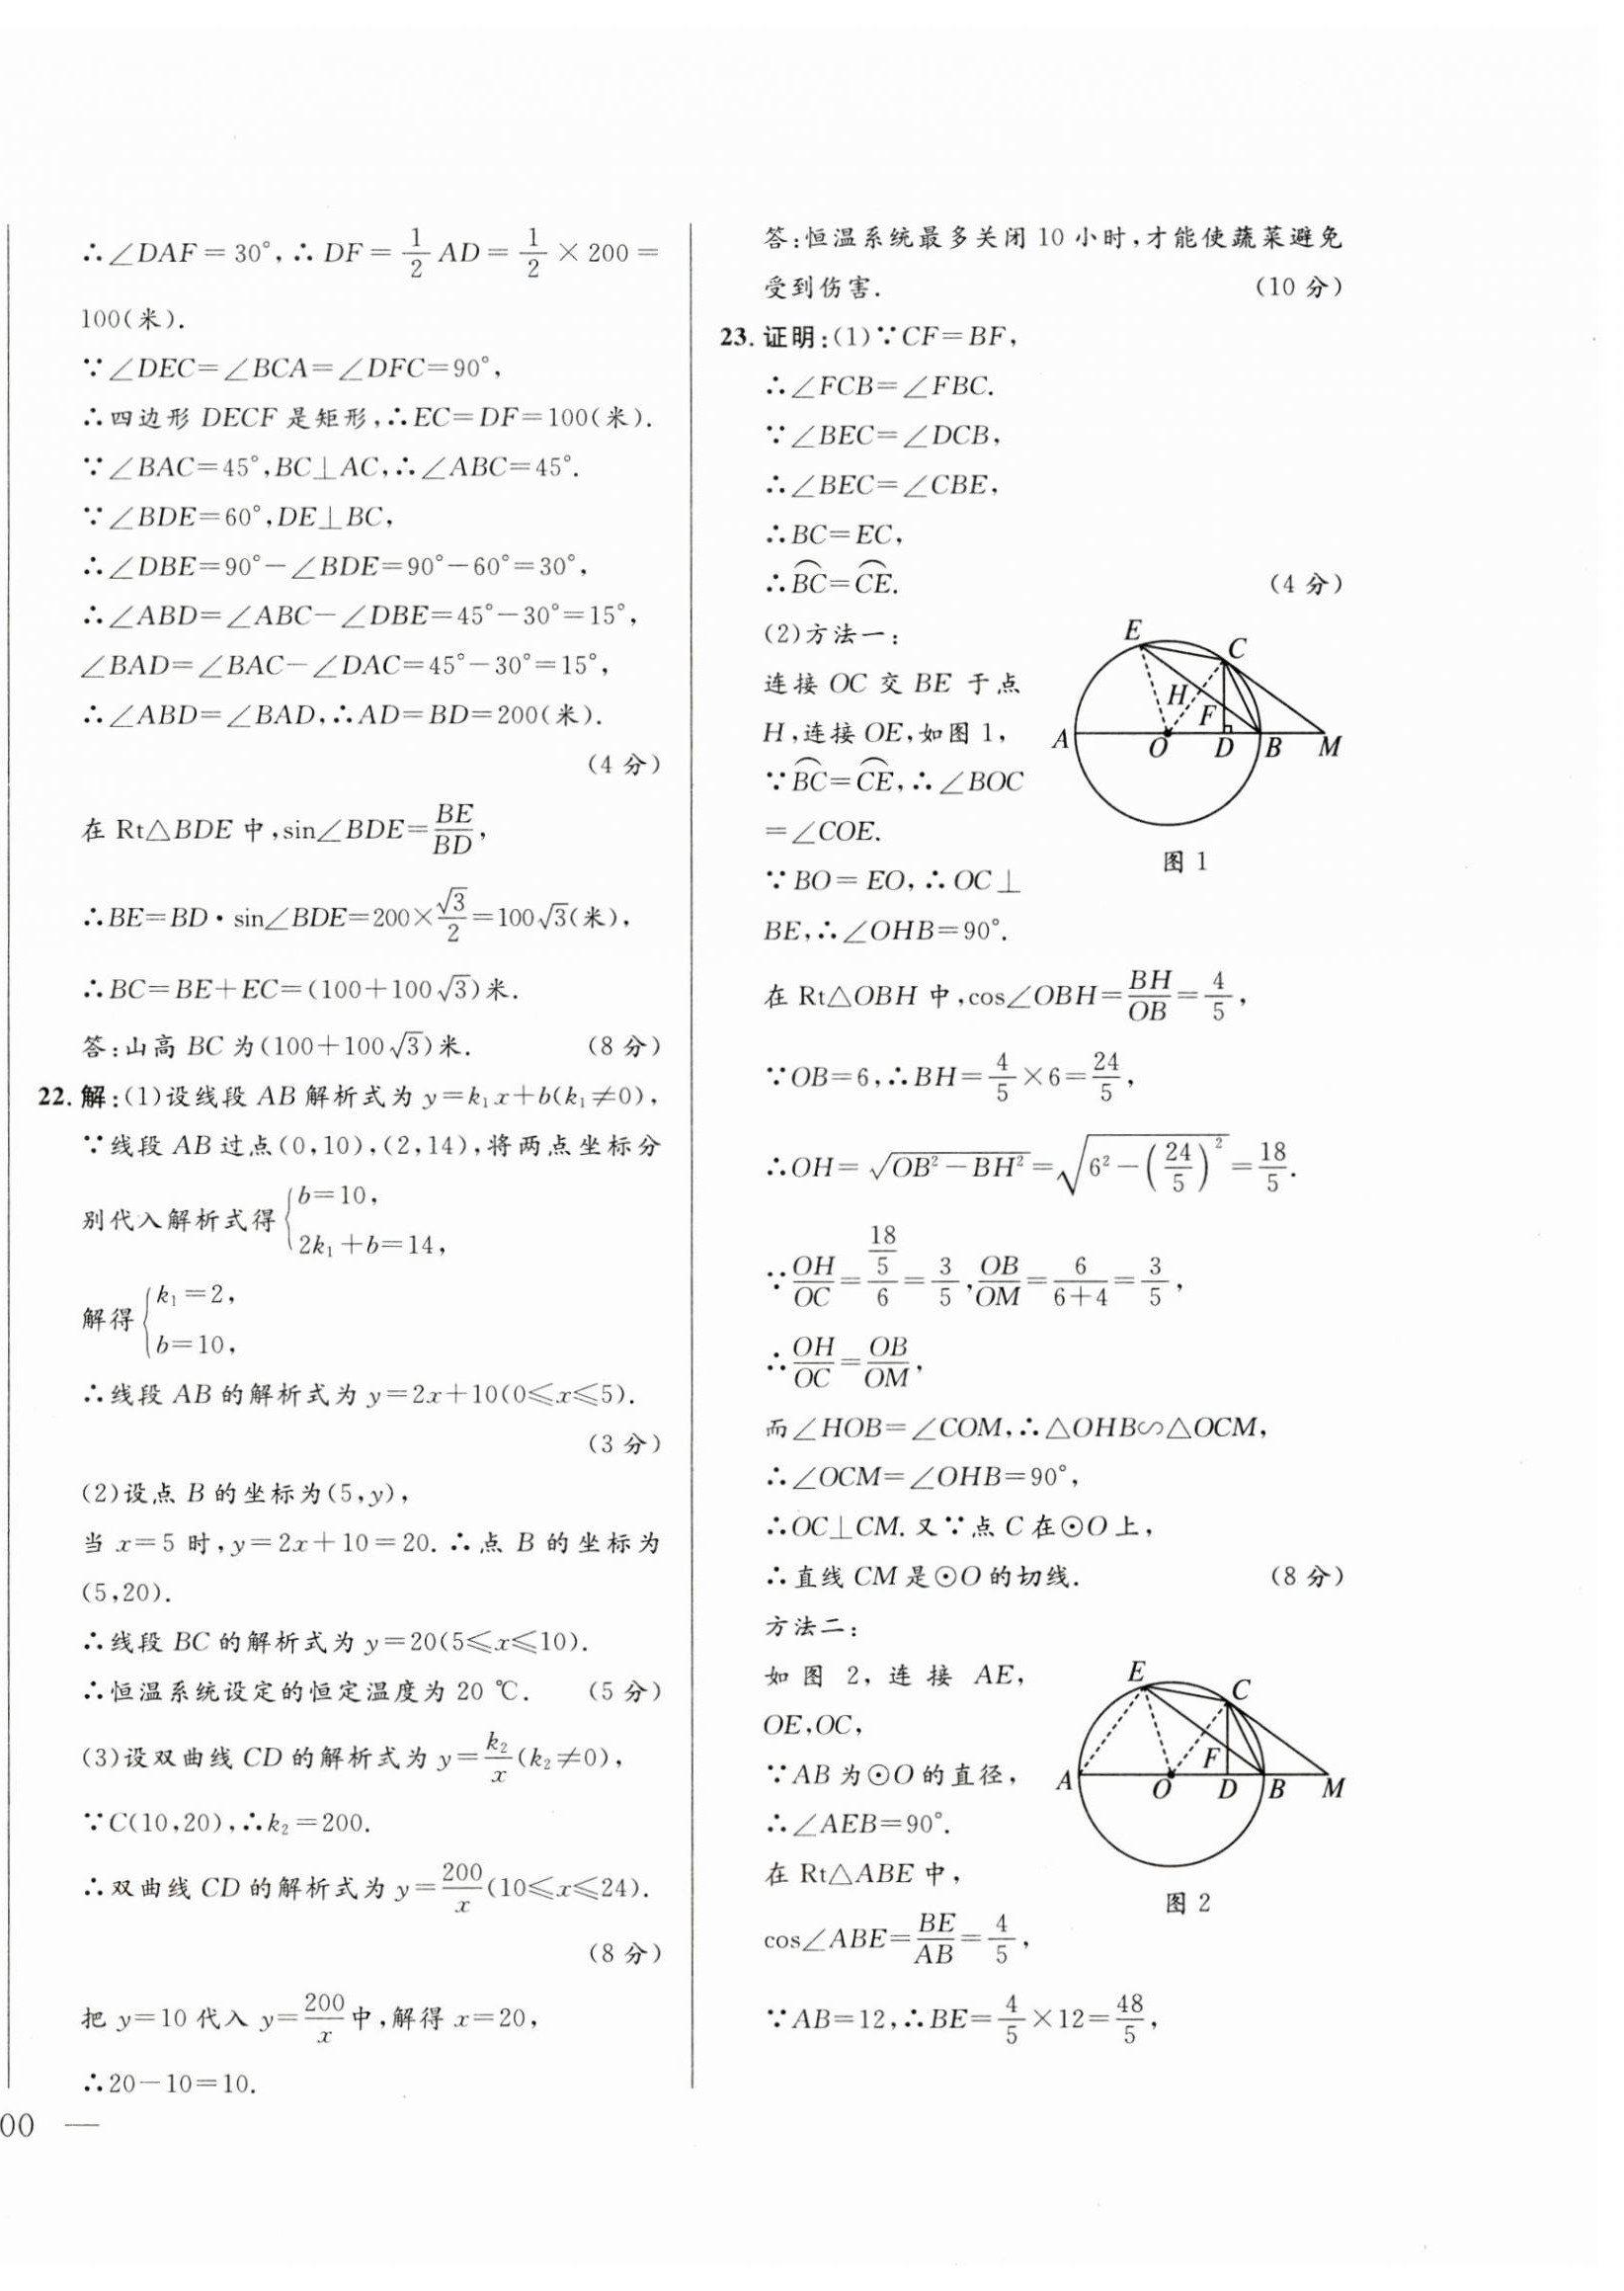 ∴∠DAF=30°,∴DF=1/2 AD=1/2×200=
100(米).
∵∠DEC=∠BCA=∠DFC=90°,
∴四边形 DECF 是矩形,∴EC=DF=100(米).
∵∠BAC=45°,BC⊥AC,∴∠ABC=45°.
∵∠BDE=60°,DE⊥BC,
∴∠DBE=90°-∠BDE=90°-60°=30°,
∴∠ABD=∠ABC-∠DBE=45°-30°=15°,
∠BAD=∠BAC-∠DAC=45°-30°=15°,
∴∠ABD=∠BAD,∴AD=BD=200(米).
(4 分)
在 Rt△BDE 中,sin∠BDE=BE/BD,
∴BE=BD·sin∠BDE=200×√3/2=100√3(米),
∴BC=BE+EC=(100+100√3)米.
答:山高 BC 为(100+100√3)米. (8 分)
22.解:(1)设线段 AB 解析式为 y=k₁x+b(k₁≠0),
∵线段 AB 过点(0,10),(2,14),将两点坐标分
别代入解析式得{b=10,
2k₁+b=14,
解得{k₁=2,
b=10,
∴线段 AB 的解析式为 y=2x+10(0≤x≤5).
(3 分)
(2)设点 B 的坐标为(5,y),
当 x=5 时,y=2x+10=20.∴点 B 的坐标为
(5,20).
∴线段 BC 的解析式为 y=20(5≤x≤10).
∴恒温系统设定的恒定温度为 20 ℃. (5 分)
(3)设双曲线 CD 的解析式为 y=k₂/x(k₂≠0),
∵C(10,20),∴k₂=200.
∴双曲线 CD 的解析式为 y=200/x(10≤x≤24).
(8 分)
把 y=10 代入 y=200/x中,解得 x=20,
∴20-10=10.
00 —
答:恒温系统最多关闭 10 小时,才能使蔬菜避免
受到伤害. (10 分)
23.证明:(1)∵CF=BF,
∴∠FCB=∠FBC.
∵∠BEC=∠DCB,
∴∠BEC=∠CBE,
∴BC=EC,
∴⌒BC=⌒CE. (4 分)
(2)方法一:
连接 OC 交 BE 于点
H,连接 OE,如图 1,
∵⌒BC=⌒CE,∴∠BOC
=∠COE.
∵BO=EO,∴OC⊥
BE,∴∠OHB=90°.
E
C
H
F
A
O
D
B
M
图 1
在 Rt△OBH 中,cos∠OBH=BH/OB=4/5,
∵OB=6,∴BH=4/5×6=24/5,
∴OH=√(OB²-BH²)=√(6²-(24/5)²)=18/5.
∵OH/OC=(18/5)/6=3/5,OB/OM=6/(6+4)=3/5,
∴OH/OC=OB/OM,
而∠HOB=∠COM,∴△OHB∽△OCM,
∴∠OCM=∠OHB=90°,
∴OC⊥CM.又∵点 C 在⊙O 上,
∴直线 CM 是⊙O 的切线. (8 分)
方法二:
如图 2,连接 AE,
OE,OC,
∵AB 为⊙O 的直径,
∴∠AEB=90°.
在 Rt△ABE 中,
E
C
F
A
O
D
B
M
图 2
cos∠ABE=BE/AB=4/5,
∵AB=12,∴BE=4/5×12=48/5,